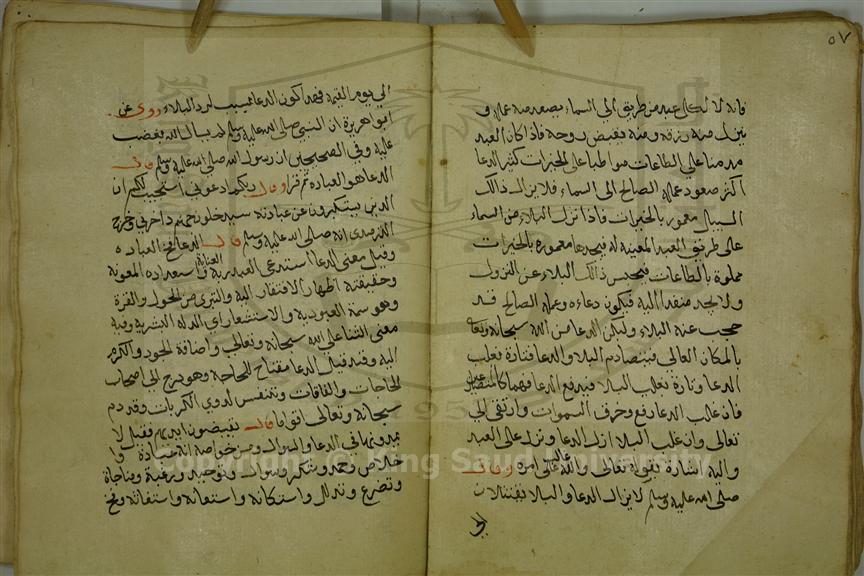 ٥٧
فانه لا لكل عبد من طريق الى السماء يصعد منه عمله و
ينزل منه رزقه ومنه يقبض روحه فاذا كان العبد
مدمنا على الطاعات مواظبا على الخيرات كثير الدعا
اكثر صعود عمله الصالح الى السماء فلا يزال ذالك
السبيل معمور بالخيرات فاذا نزل البلاء من السماء
على طريق العبد المعينه له فيجدها معموره بالخيرات
مملوة بالطاعات فيحبس ذالك البلاء عن النزول
ولا يجد منفذ اليه فيكون دعاءه وعمله الصالح قد
حجب عنه البلاء وليكن الدعا من الله سبحانه وتعا
بالمكان العالي فيتصادم البلا والدعا فتارة يغلب
الدعا وتارة يغلب البلا فيدفع الدعا فهما
فان غلب الدعا رفع وخرق السموات وارتقى الى
تعالى وان غلب البلا ازل الدعا ونزل على العبد
واليه اشارة بقوله تعالى والله غالب على امره وقال
صلى الله عليه وسلم لا يزال الدعا والبلا يقتتلان
الى
الى يوم القيمة فهدا كون الدعا سبب لرد البلاء روى عن
ابو هريرة ان النبي صلى الله عليه وسلم لم يسال الله يغضب
عليه وفي الصحيحين ان رسول الله صلى الله عليه وسلم قال
الدعا هو العباده ثم قرا وقال ربكم ادعوني استجيب لكم ان
الذين يستكبرون عن عبادته سيدخلون جهنم داخرين خرج
الترمدي انه صلى الله عليه وسلم قال الدعا مخ العباده
وقيل معنى الدعا استدعى العبد ربه العنايه واستمداده المعونه
وحقيقته اظهار الافتقار اليه والتبري من الحول والقوة
وهو سمة العبودية والاستشعار اي الدله البشرية وفيه
معنى الثنا على الله سبحانه وتعالى واضافة الجود والكرم
اليه وقد قيل الدعا مفتاح للحاجة وهو درج الى اصحاب
الحاجات والفاقات وتنفيس لدوي الكربات وقد دم
سبحانه وتعالى اقواما قال يقبضون ايديهم فقيل لا
يمدونها في الدعا والسوال ومن خواصه انه عبادة وا
خلاص وحمد وشكر وسوال وتوحيد ورغبة ومناجاة
وتضرع وتدلل واستكانه واستعانه واستغاثه ومخ
Copyright © King Saud University
1957